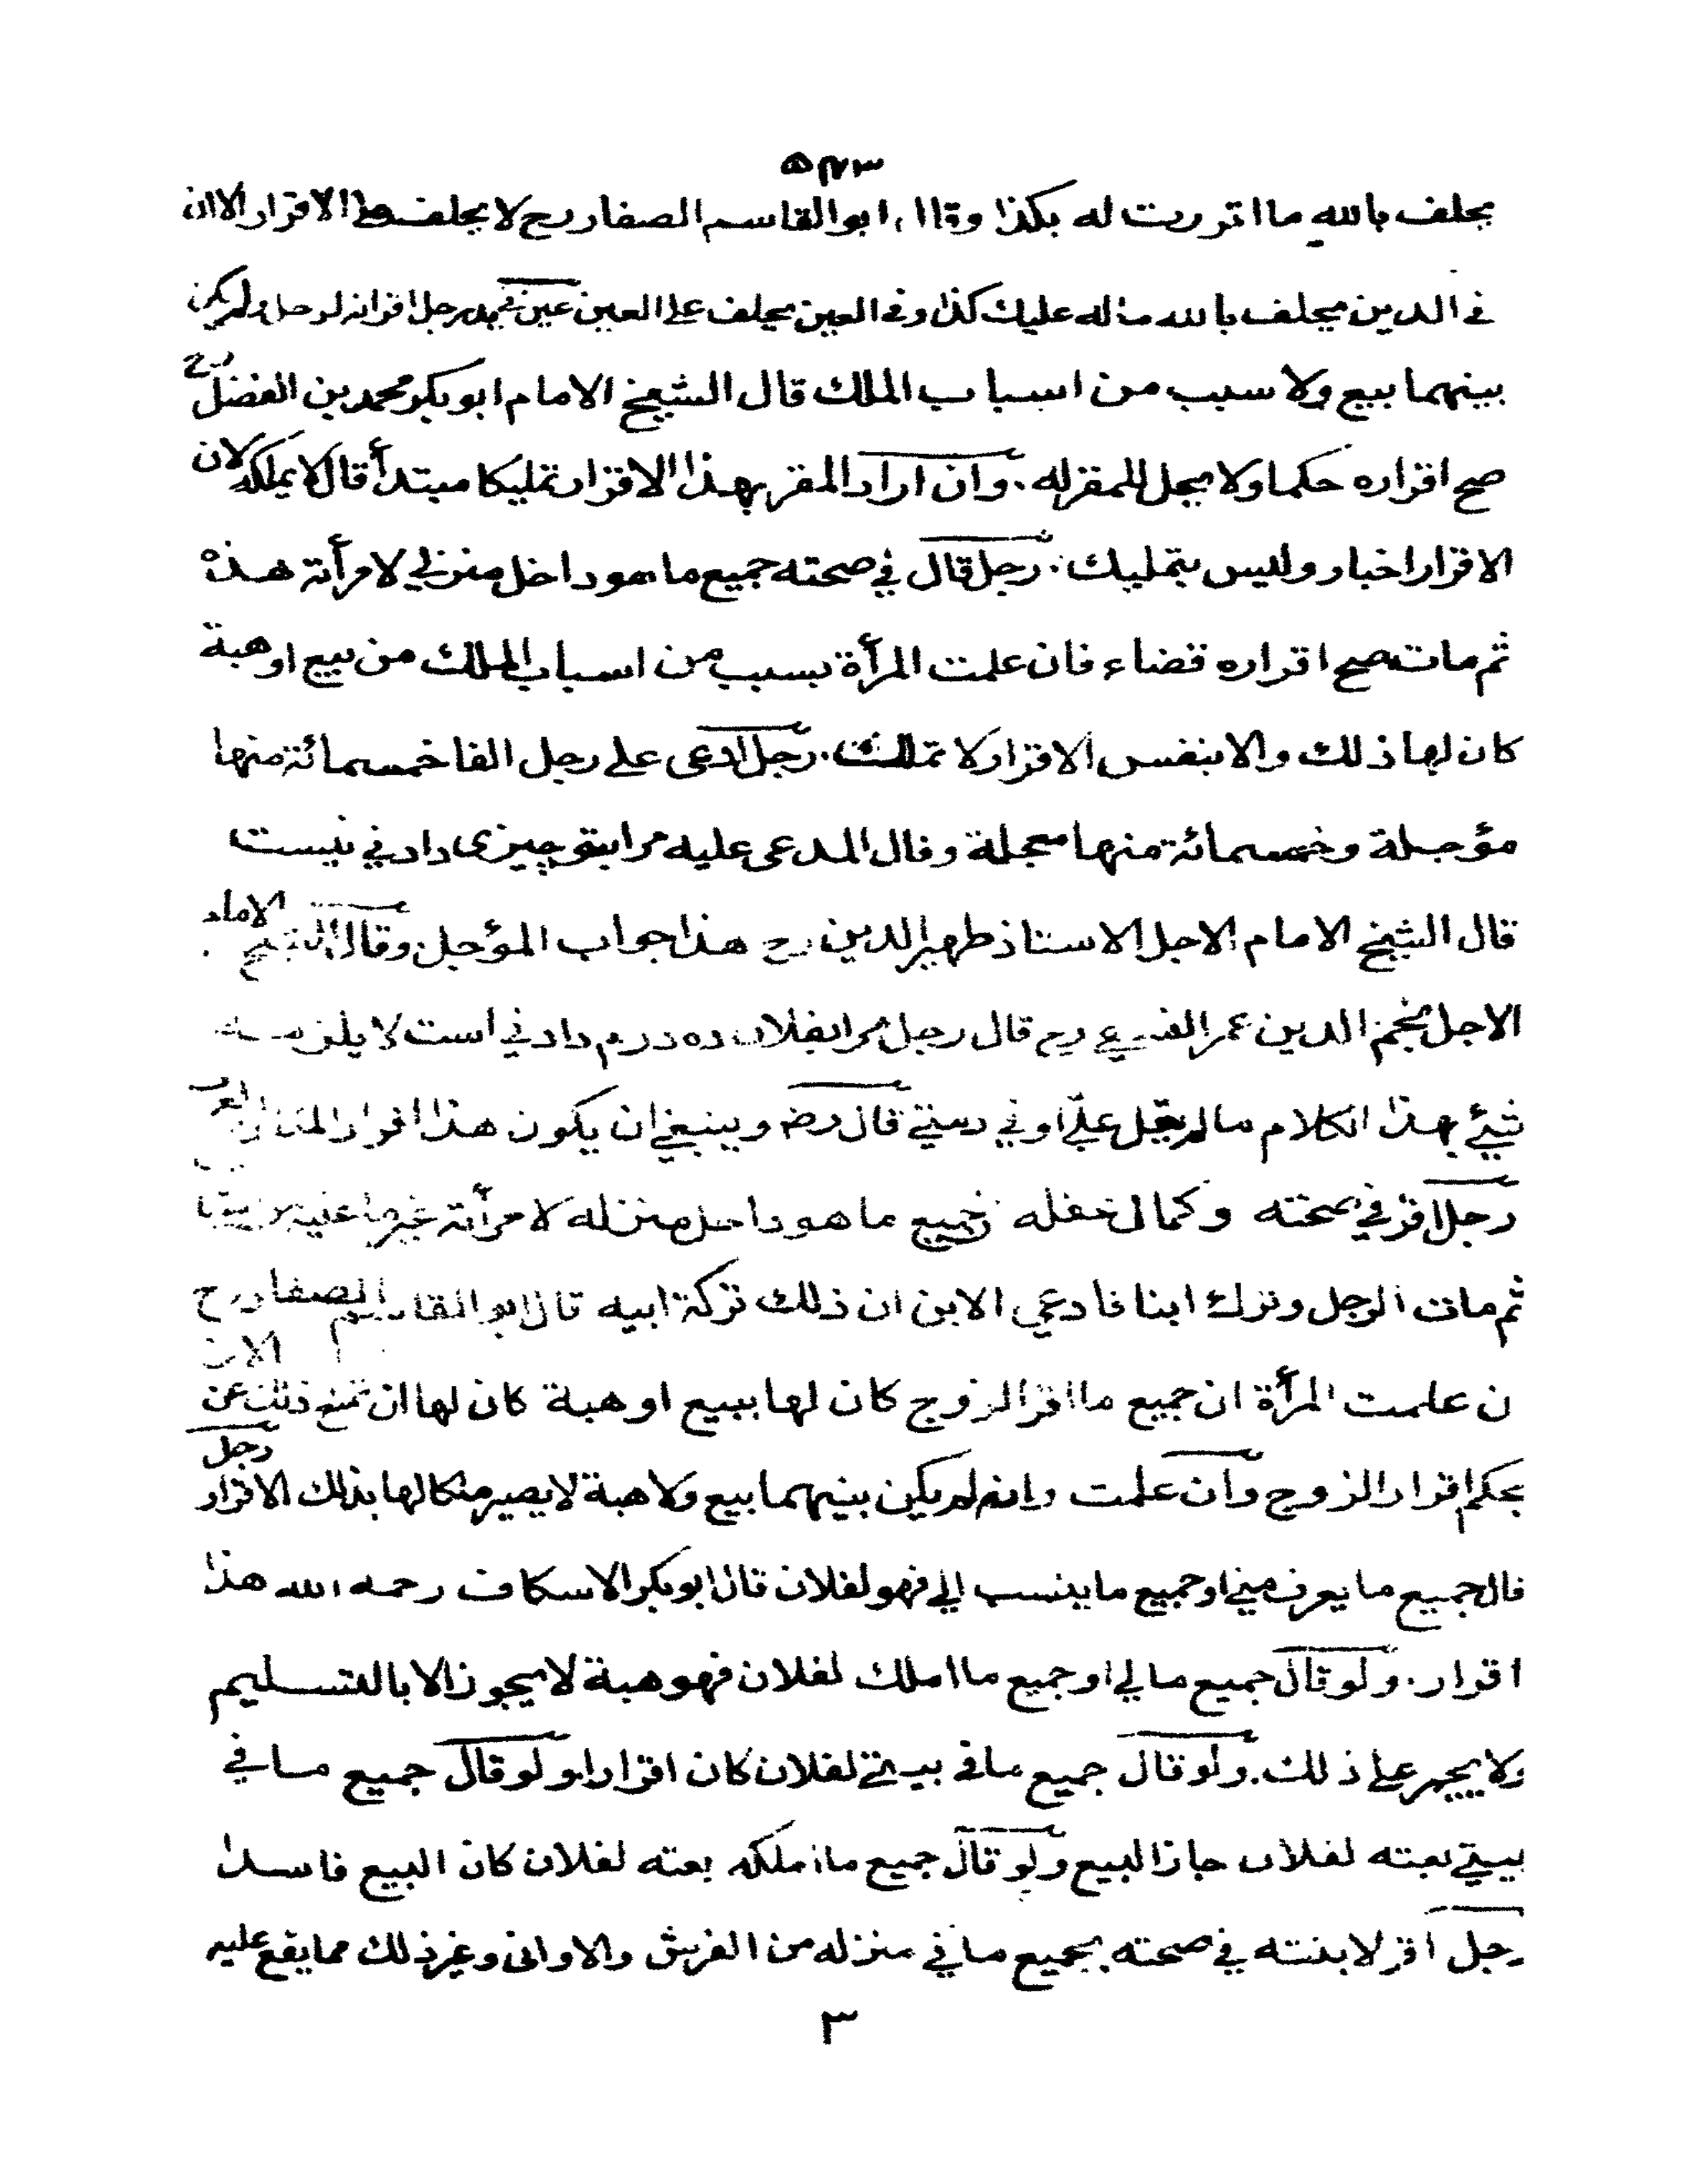 ٥٤٣
يحلف بالله ما اقررت له بكذا وقال ابو القاسم الصفار رح لا يحلف على الاقرار الا ان
في الدين يحلف بالله ماله عليك كذا وفي العين يحلف على العين عين في يد رجل اقر انه لرجل ولم يكن
بينهما بيع ولا سبب من اسباب الملك قال الشيخ الامام ابو بكر محمد بن الفضل رح
صح اقراره حكما ولا يحل للمقر له . وان اراد المقر بهذا الاقرار تمليكا مبتدأ قال لا يملكه لان
الاقرار اخبار وليس بتمليك . رجل قال في صحته جميع ما هو داخل منزلي لامرأته هذه
ثم مات صح اقراره قضاء فان علمت المرأة بسبب من اسباب الملك من بيع او هبة
كان لها ذلك والا بنفس الاقرار لا تملك . رجل ادعى على رجل الفا خمسمائة منها
مؤجلة وخمسمائة منها معجلة وقال المدعى عليه مرا بتو چيزى دادني نيست
قال الشيخ الامام الاجل الاستاذ ظهير الدين رح هذا جواب المؤجل وقال الشيخ الامام
الاجل نجم الدين عمر النسفي رح قال رجل مرا بفلان ده درم دادني است لا يلزمه
شيئ بهذا الكلام ما لم يقل علي او في ذمتي قال رضه وينبغي ان يكون هذا اقرارا
رجل اقر في صحته وكمال عقله جميع ما هو داخل منزله لامرأته غير ما عليه من
ثم مات الرجل وترك ابنا فادعى الابن ان ذلك تركة ابيه قال ابو القاسم الصفار رح
ن علمت المرأة ان جميع ما اقر الزوج كان لها ببيع او هبة كان لها ان تمنع ذلك عن الابن
بحكم اقرار الزوج وان علمت وانه لم يكن بينهما بيع ولا هبة لا يصير ملكا لها بذلك الاقرار رجل
قال جميع ما يعرف مني او جميع ما ينسب الي فهو لفلان قال ابو بكر الاسكاف رحمه الله هذا
اقرار . ولو قال جميع مالي او جميع ما املك لفلان فهو هبة لا يجوز الا بالتسليم
ولا يجبر على ذلك . ولو قال جميع ما في بيتي لفلان كان اقرارا ولو قال جميع ما في
بيتي بعته لفلان جاز البيع ولو قال جميع ما املكه بعته لفلان كان البيع فاسدا
رجل اقر لابنته في صحته بجميع ما في منزله من الفرش والاواني وغير ذلك مما يقع عليه
٣